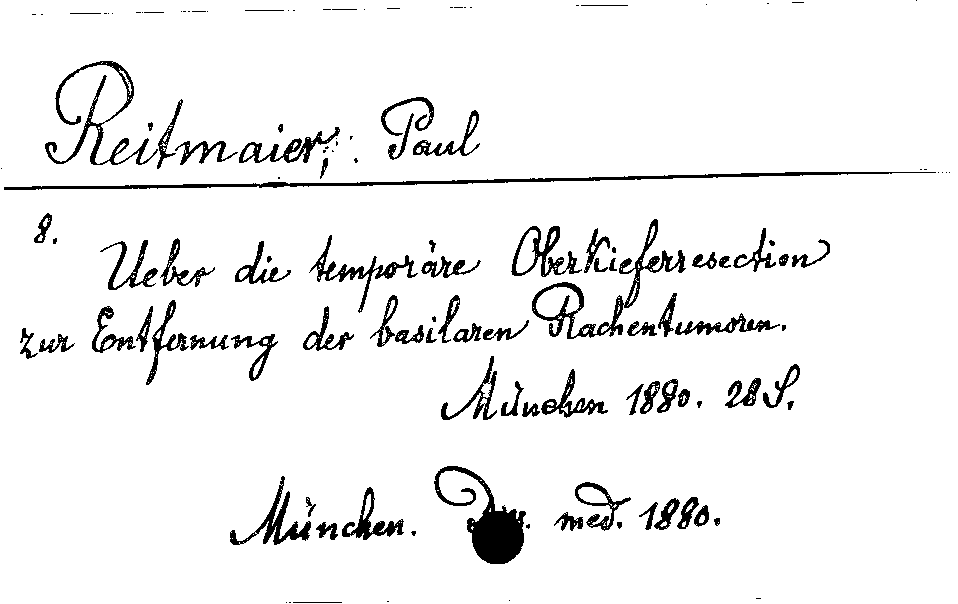 Reitmaier, Paul
8.
Ueber die temporäre Oberkieferresection
zur Entfernung der basilaren Rachentumoren.
München 1880. 28 S.
München. med. 1880.